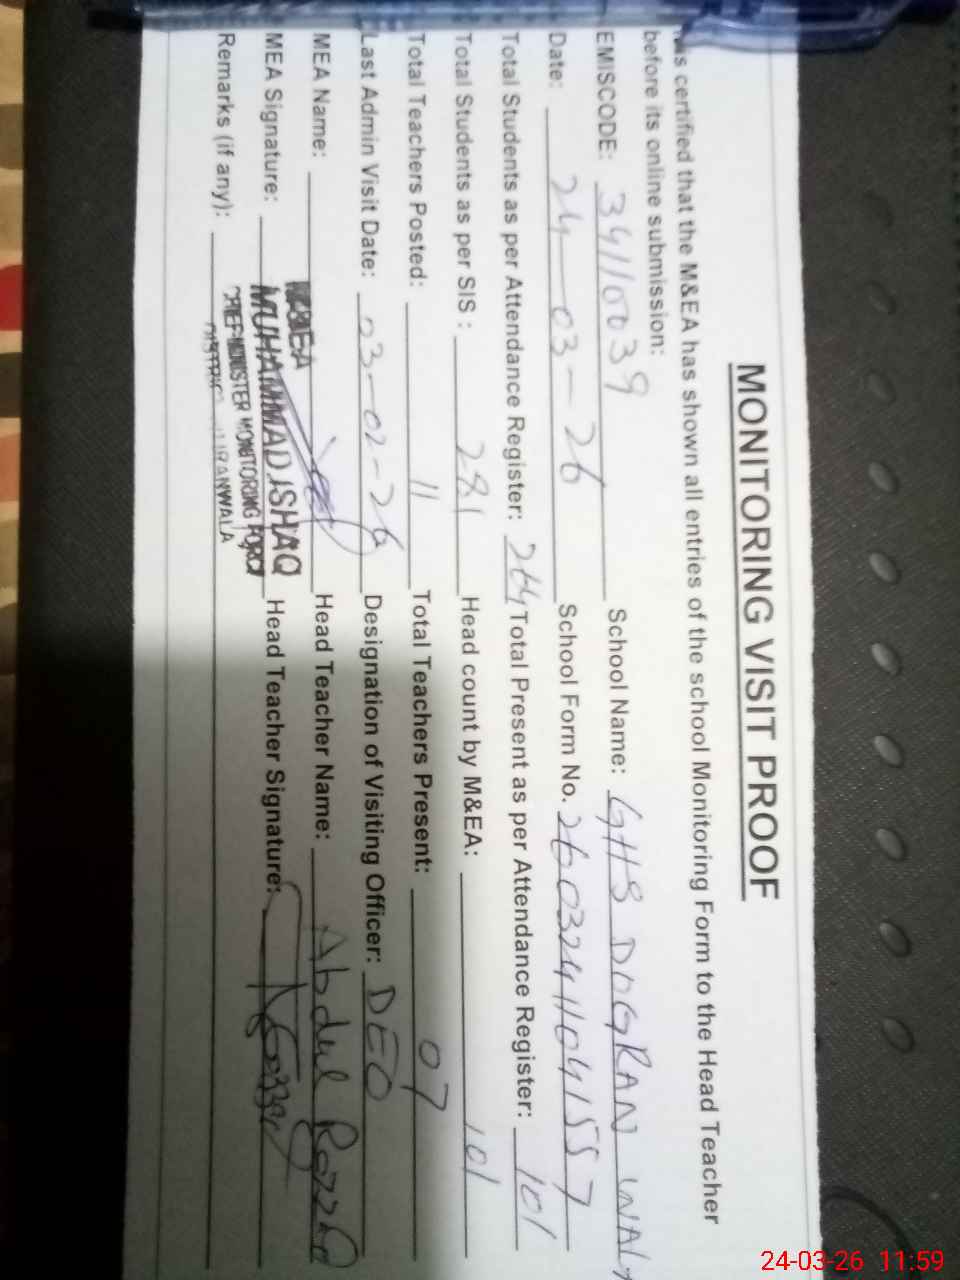 MONITORING VISIT PROOF
is certified that the M&EA has shown all entries of the school Monitoring Form to the Head Teacher
before its online submission:
EMISCODE: 34110039 School Name: GHS DOGRAN WAL
Date: 24-03-26 School Form No. 26032411041557
Total Students as per Attendance Register: 264 Total Present as per Attendance Register: 101
Total Students as per SIS: 281 Head count by M&EA: 101
Total Teachers Posted: 11 Total Teachers Present: 07
Last Admin Visit Date: 03-02-26 Designation of Visiting Officer: DEO
MEA Name: Head Teacher Name: Abdul Razzaq
MEA Signature: MUHAMMAD ISHAQ Head Teacher Signature:
CHIEF MINISTER MONITORING FORCE
Remarks (if any):
24-03-26 11:59